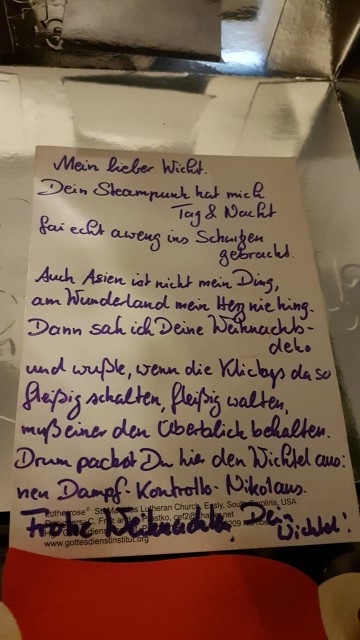 Mein lieber Wicht.
Dein Steampunk hat mich
Tag & Nacht
fai echt aweng ins Schwitzen
gebracht.
Auch Asien ist nicht mein Ding,
am Wunderland mein Herz nie hing.
Dann sah ich Deine Weihnachts-
deko
und wußte, wenn die Klickys da so
fleißig schalten, fleißig walten,
muß einer den Überblick behalten.
Drum packst Du hier den Wichtel aus:
nen Dampf-Kontrollo-Nikolaus.
Frohe Weihnachten, Dein
Wichtel!
Lutherose© St. Matthias Lutheran Church, Easly, South Carolina, USA
C. Fritz cef2@charter.net
www.gottesdienstinstitut.org